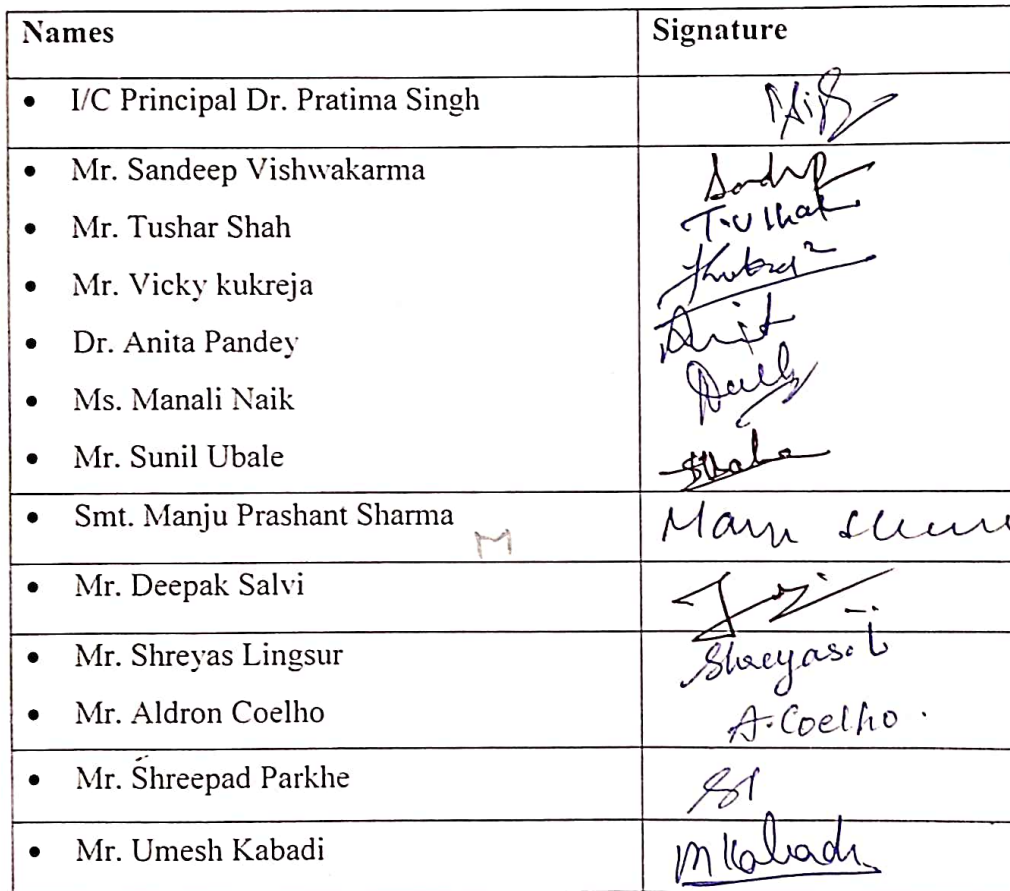 Names Signature
• I/C Principal Dr. Pratima Singh
• Mr. Sandeep Vishwakarma
• Mr. Tushar Shah T.U Shah
• Mr. Vicky kukreja
• Dr. Anita Pandey
• Ms. Manali Naik
• Mr. Sunil Ubale
• Smt. Manju Prashant Sharma M
• Mr. Deepak Salvi
• Mr. Shreyas Lingsur Shreyas. L
• Mr. Aldron Coelho A. Coelho .
• Mr. Shreepad Parkhe
• Mr. Umesh Kabadi